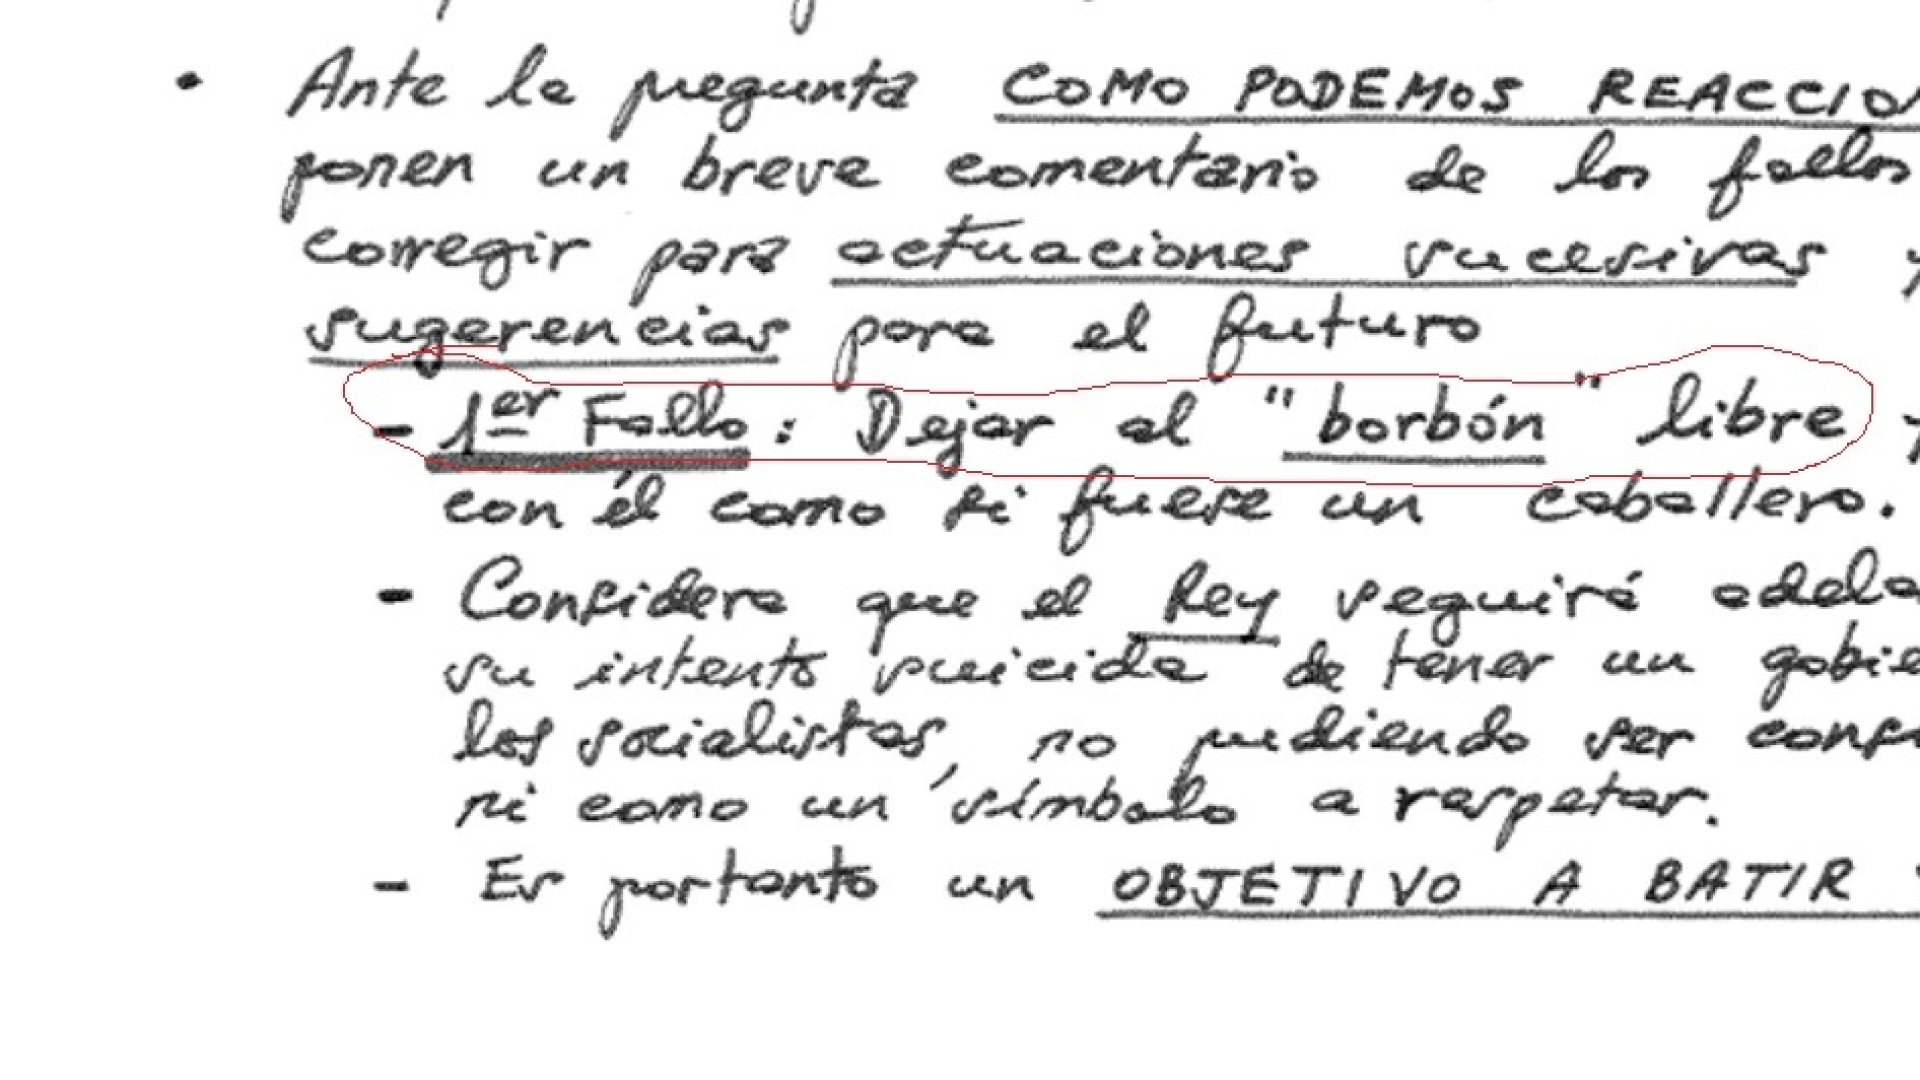 • Ante la pregunta COMO PODEMOS REACCION
ponen un breve comentario de los fallos
corregir para actuaciones sucesivas y
sugerencias para el futuro
- 1er Fallo: Dejar al "borbón" libre y
con él como si fuese un caballero.
- Considera que el Rey seguirá adela
su intento suicida de tener un gobie
los socialistas, no pudiendo ser consi
ni como un símbolo a respetar.
- Es portanto un OBJETIVO A BATIR Y